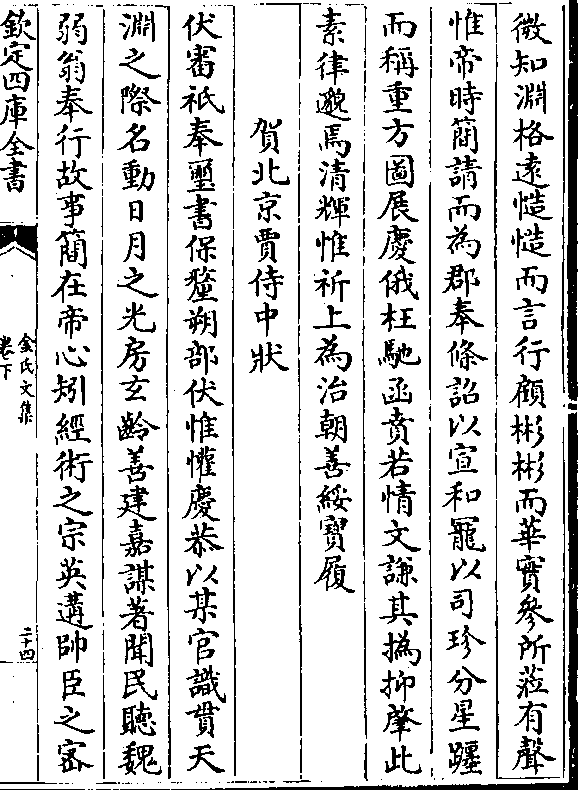 微知淵格逺慥慥而言行顧彬彬而華實參所蒞有聲
惟帝時簡請而為郡奉條詔以宣和寵以司珍分星躔
而稱重方圖展慶俄枉馳函賁若情文謙其撝抑肇此
素律邈焉清輝惟祈上為治朝善綏寳履
賀北京賈侍中狀
伏審祇奉璽書保釐朔部伏惟懽慶恭以某官識貫天
淵之際名動日月之光房玄齡善建嘉謀著聞民聽魏
弱翁奉行故事簡在帝心矧經術之宗英遘帥臣之宻
欽定四庫全書
金氏文集
卷下
二十四